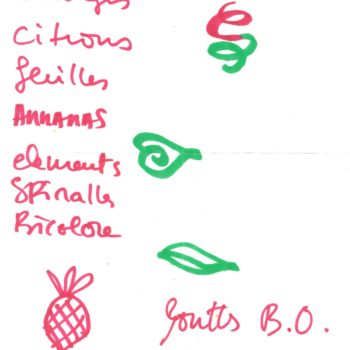 citrons
feuilles
ANNANAS
elements
SPiralles
Bicolore
Goutts B.O.